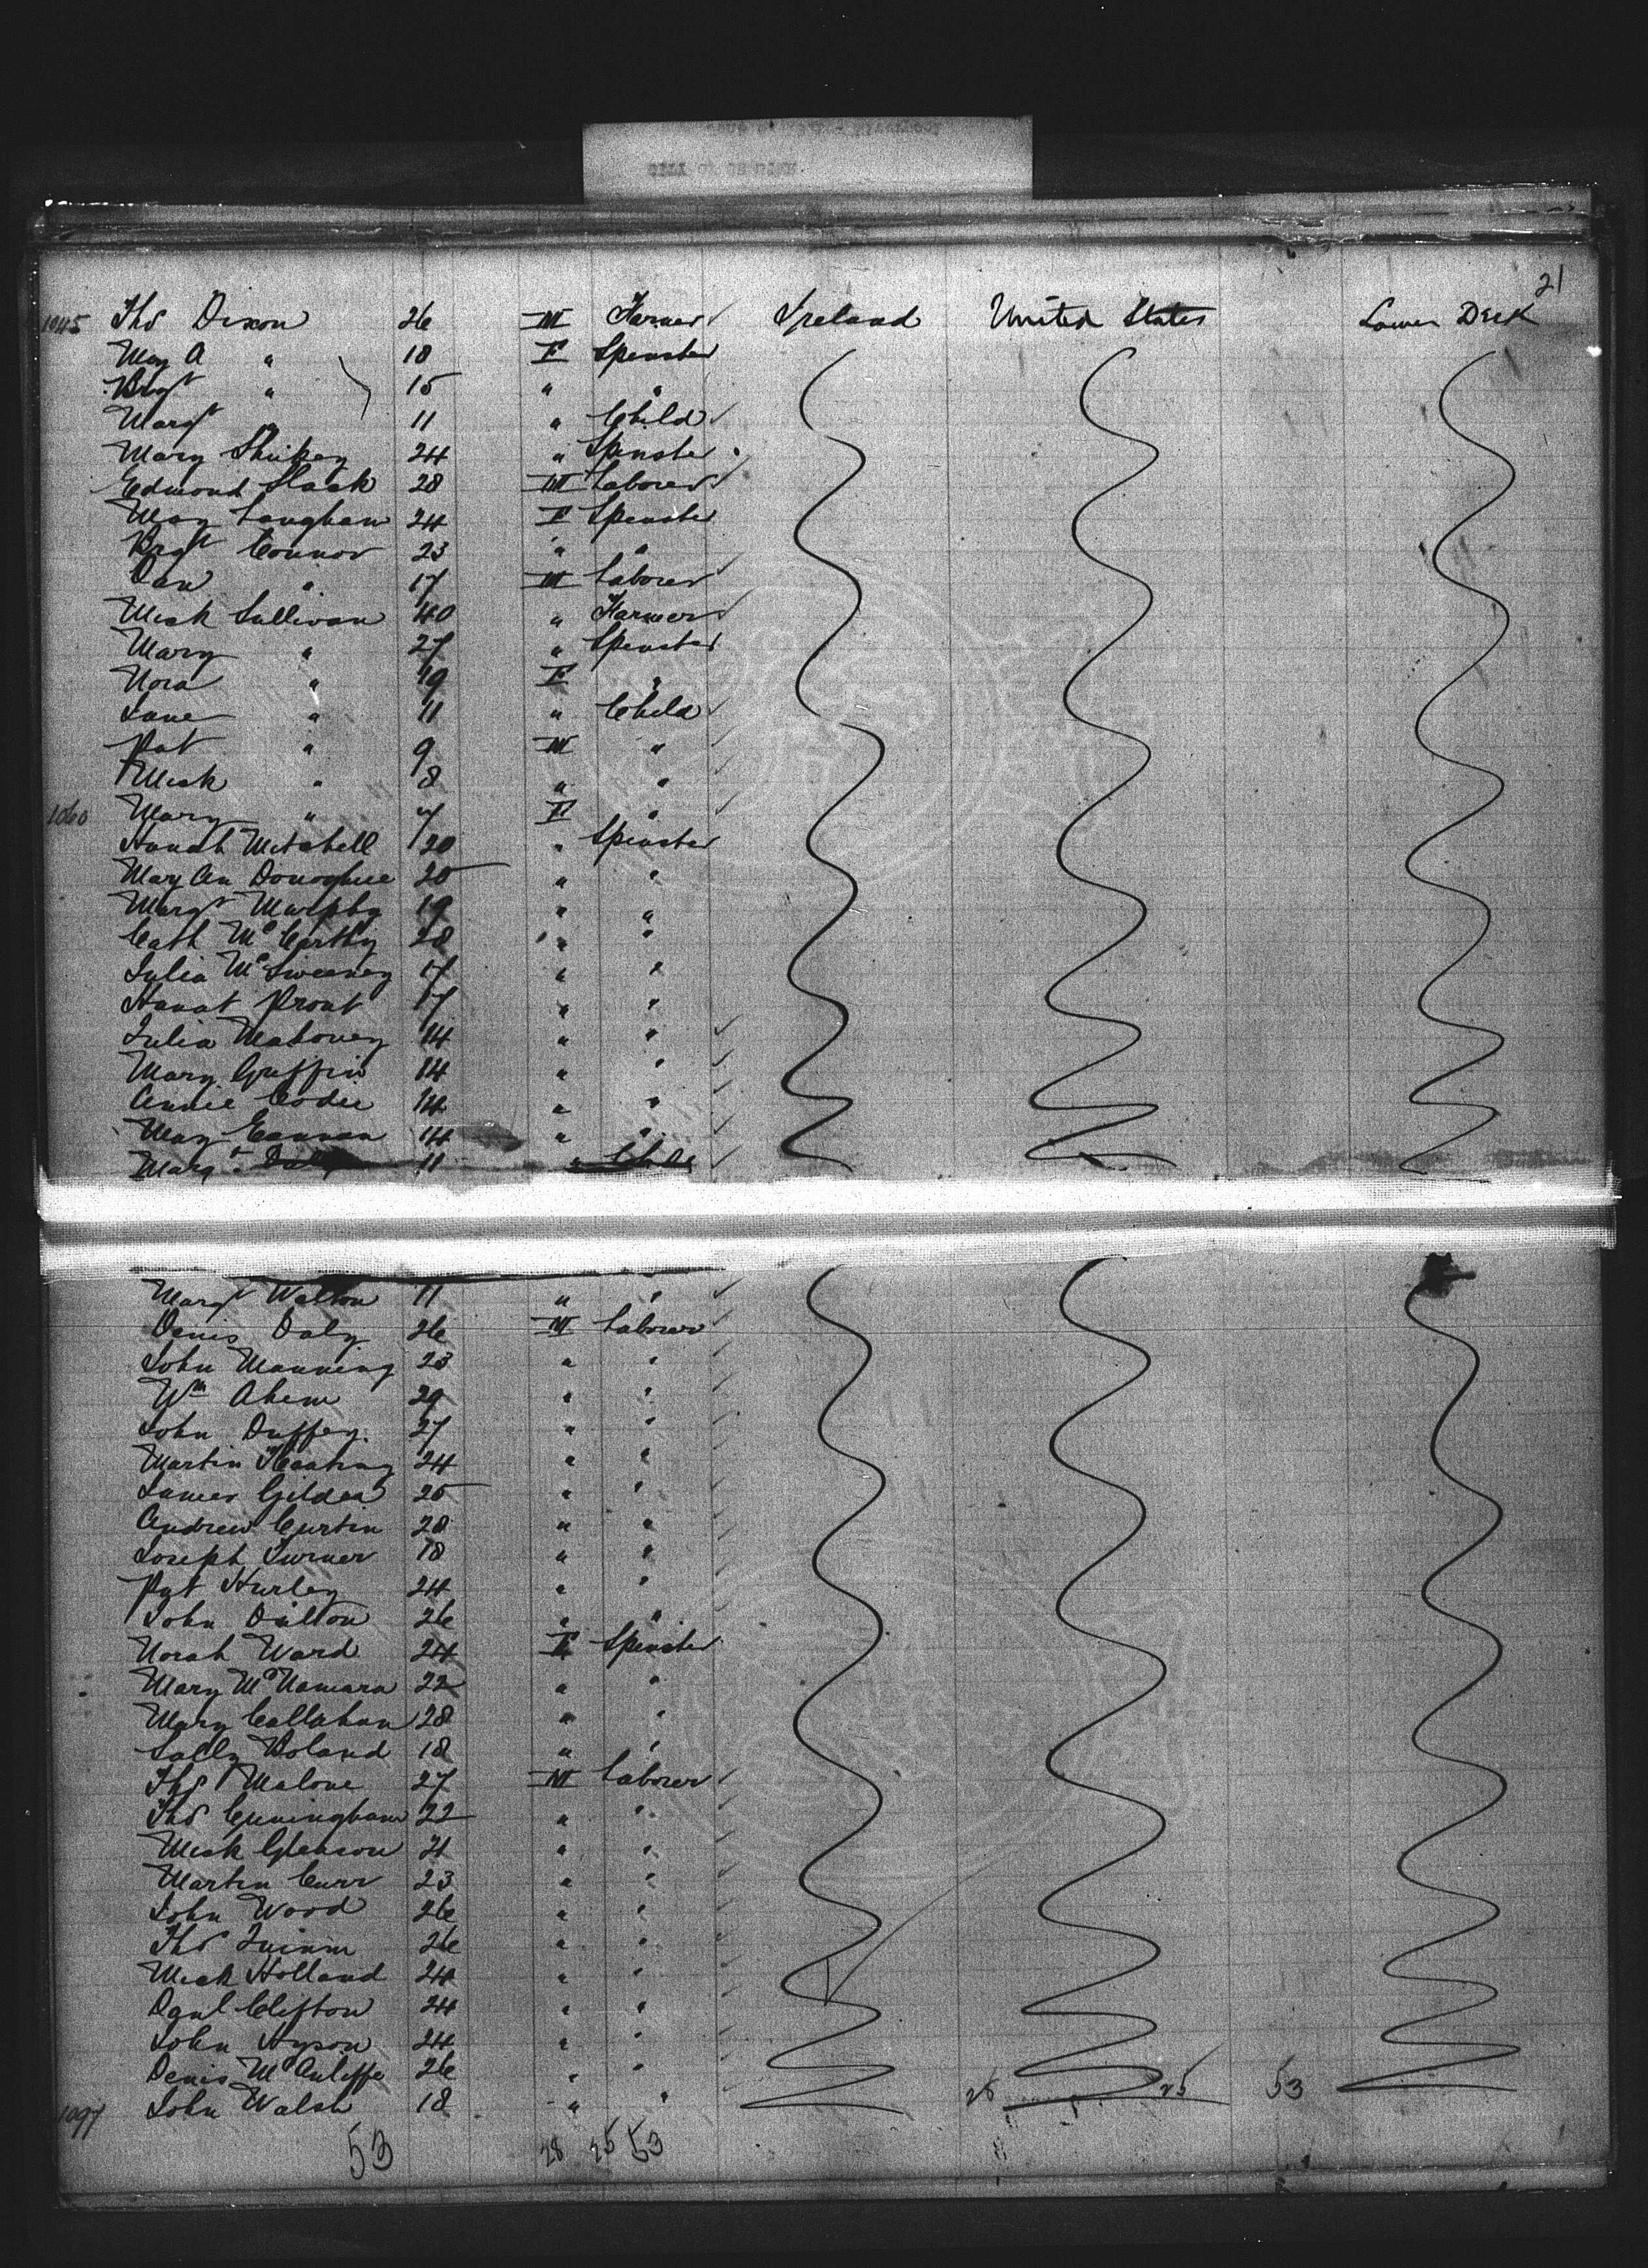 21
1045 Thos Dixon 26 M Farmer Ireland United States Lower Deck
May A " 18 F Spinster
Brgt " 15 " "
Margt " 11 " Child
Mary 24 " Spinster
Edmond Slack 28 M Laborer
May Langhan 24 F Spinster
Brgt Connor 23 " "
Dan " 17 M Laborer
Mick Sullivan 40 " Farmer
Mary " 27 " Spinster
Nora " 19 F "
Jane " 11 " Child
Pat " 9 M "
Mick " 8 " "
1060 Mary " 7 F "
Hanah Mitchell 20 " Spinster
Mary An Donoghue 25 " "
Margt Murphy 19 " "
Cath McCarthy 28 " "
Julia McSweeney 17 " "
Hanat Prout 17 " "
Julia Mahoney 14 " "
Mary Griffin 14 " "
Annie Codie 14 " "
May Cannan 14 " "
Margt Daly 11 " Child
Margt Walton 11 " "
Denis Daly 26 M Laborer
John Manning 23 " "
Wm Ahern 29 " "
John Duffey 27 " "
Martin 24 " "
James Gildea 25 " "
Andrew Curtin 28 " "
Joseph Turner 18 " "
Pat Hurley 24 " "
John Dalton 26 " "
Norah Ward 24 F Spinster
Mary McNamara 22 " "
Mary Callahan 28 " "
Sally Boland 18 " "
Thos Malone 27 M Laborer
Thos Cuningham 22 " "
Mick Gleason 21 " "
Martin Curr 23 " "
John Wood 26 " "
Thos Quinn 26 " "
Mick Holland 24 " "
Danl Clifton 24 " "
John Hyson 24 " "
Denis McAuliffe 26 " "
1097 John Walsh 18 " " 25 25 53
53 28 25 53